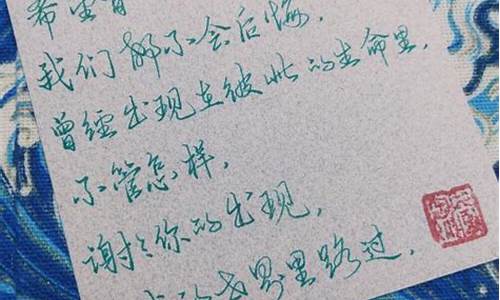 希望
我们都不会后悔，
曾经出现在彼此的生命里，
不管怎样，
谢谢你的出现，
的世界里路过．